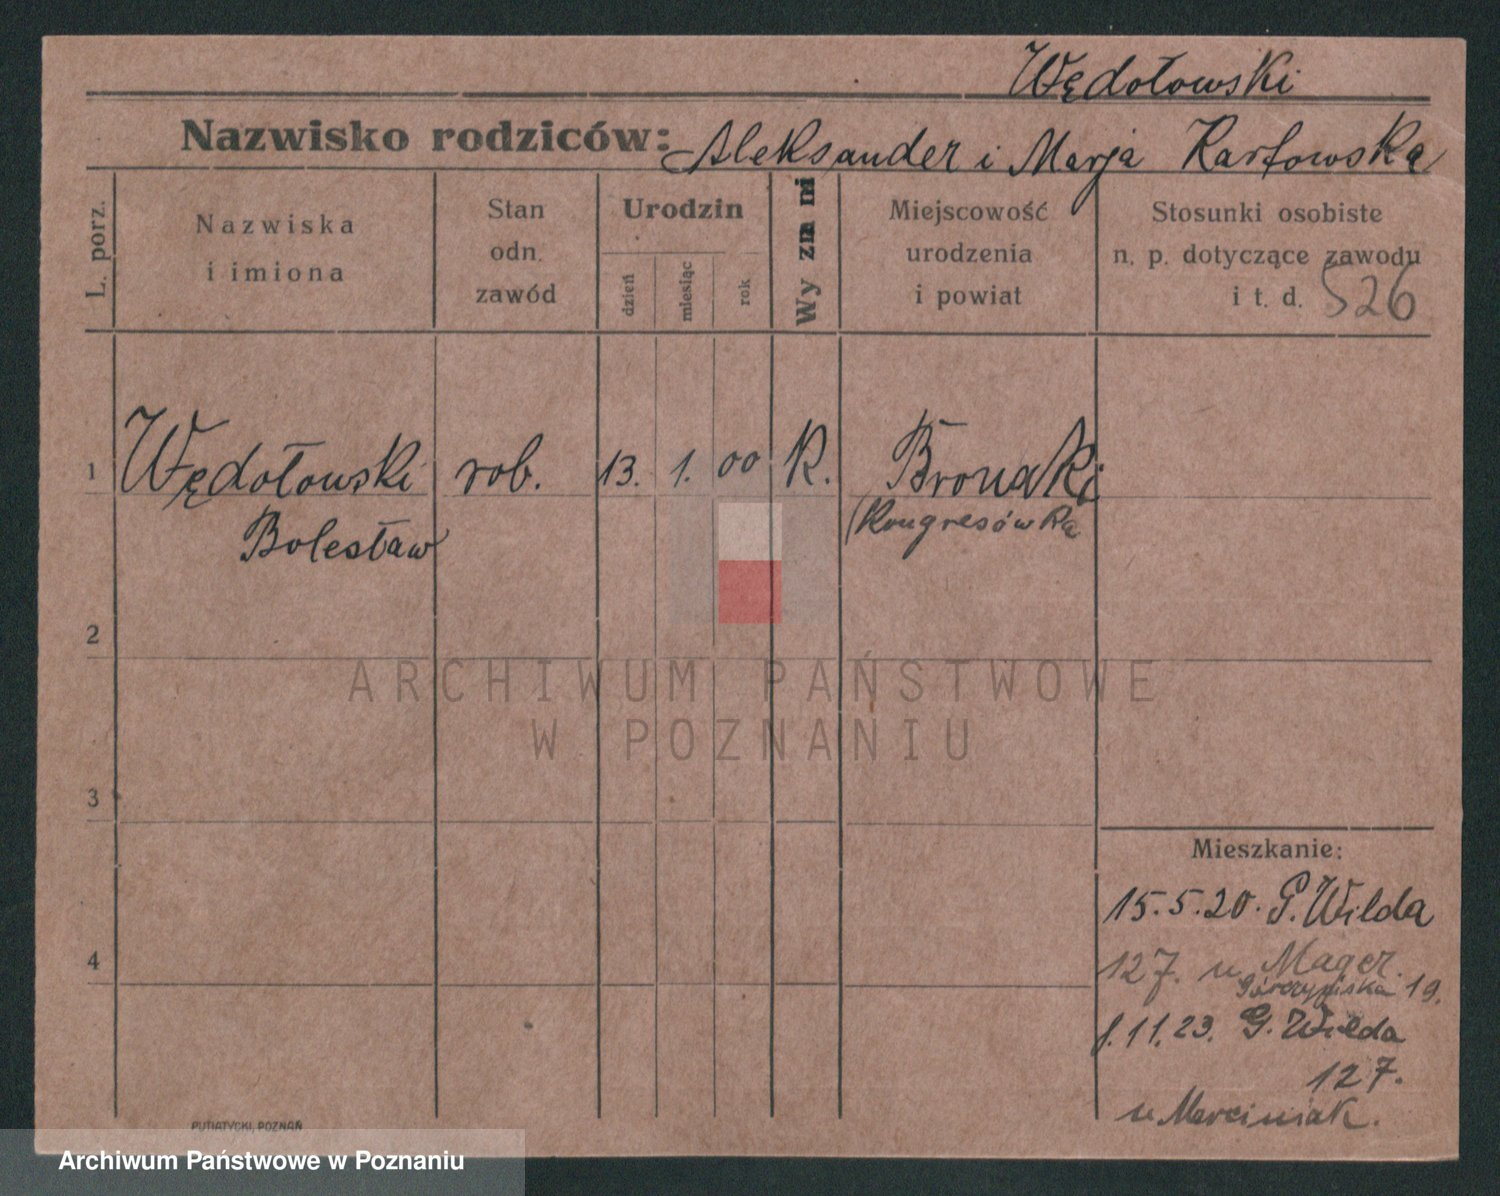 Wędołowski
Nazwisko rodziców: Aleksander i Marja Karłowska
L. porz.
Nazwiska
i imiona
Stan
odn.
zawód
Urodzin
dzień
miesiąc
rok
Wyznani
Miejscowość
urodzenia
i powiat
Stosunki osobiste
n. p. dotyczące zawodu
i t. d. 526
1 Wędołowski rob. 13. 1. 00 K. Bronaki
Bolesław (Kongresówka
2
ARCHIWUM PAŃSTWOWE
W POZNANIU
3
Mieszkanie:
15.5.20. G. Wilda
4
127. u Mager.
19.
1.11.23. G. Wilda
127.
u Marciniak.
PUTIATYCKI, POZNAŃ
Archiwum Państwowe w Poznaniu